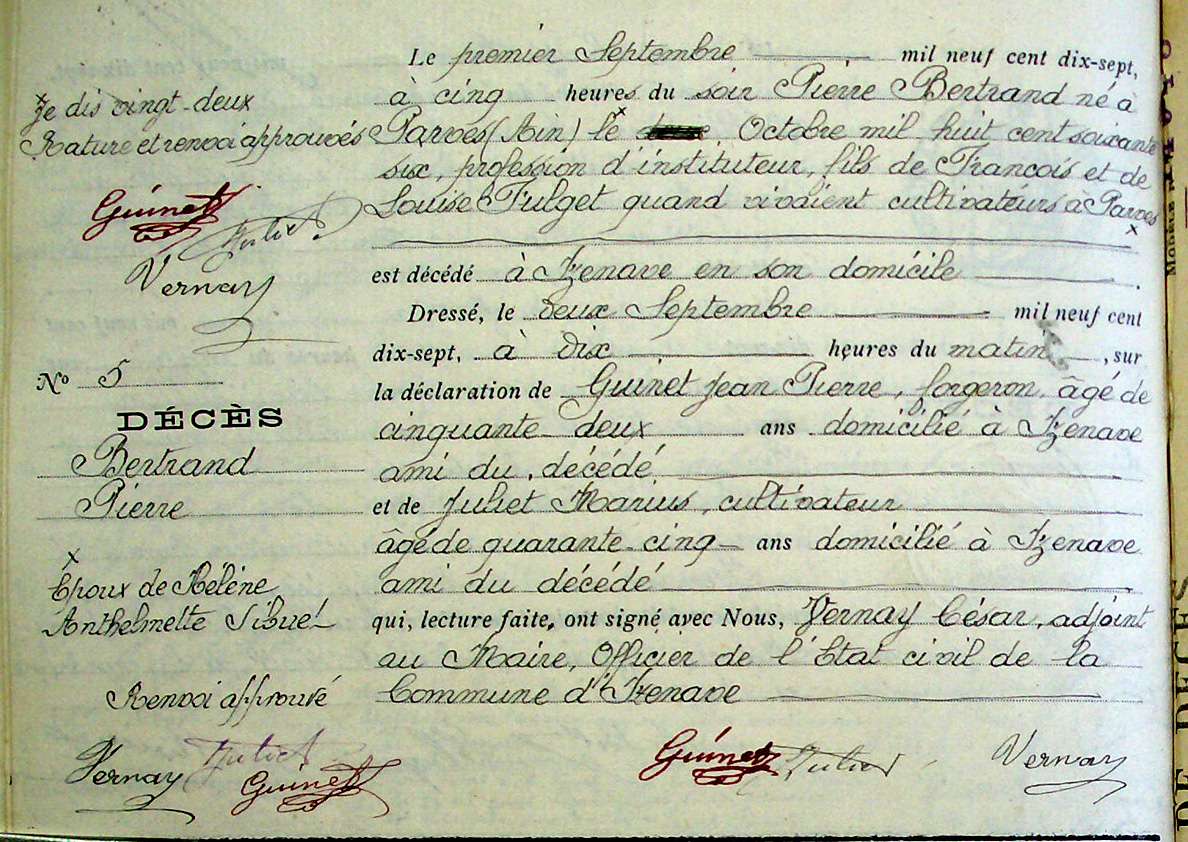 × Je dis vingt-deux
Rature et renvoi approuvés
Guinet
Juliet
Vernay
N° 5
DÉCÈS
Bertrand
Pierre
×
Epoux de Hélène
Anthelmette Sibuet
Renvoi approuvé
Vernay Juliet Guinet
Le premier Septembre mil neuf cent dix-sept,
à cinq heures du soir Pierre Bertrand né à
Parves (Ain) le × Octobre mil huit cent soixante
six, profession d'instituteur, fils de François et de
Louise Fulget quand vivaient cultivateurs à Parves
×
est décédé à Izenave en son domicile
Dressé, le deux Septembre mil neuf cent
dix-sept, à dix heures du matin, sur
la déclaration de Guinet Jean Pierre, forgeron, âgé de
cinquante-deux ans domicilié à Izenave
ami du décédé
et de Juliet Marius, cultivateur
âgé de quarante-cinq ans domicilié à Izenave
ami du décédé
qui, lecture faite, ont signé avec Nous, Vernay César, adjoint
au Maire, Officier de l'Etat civil de la
Commune d'Izenave
Guinet Juliet Vernay
DE DÉCÈS